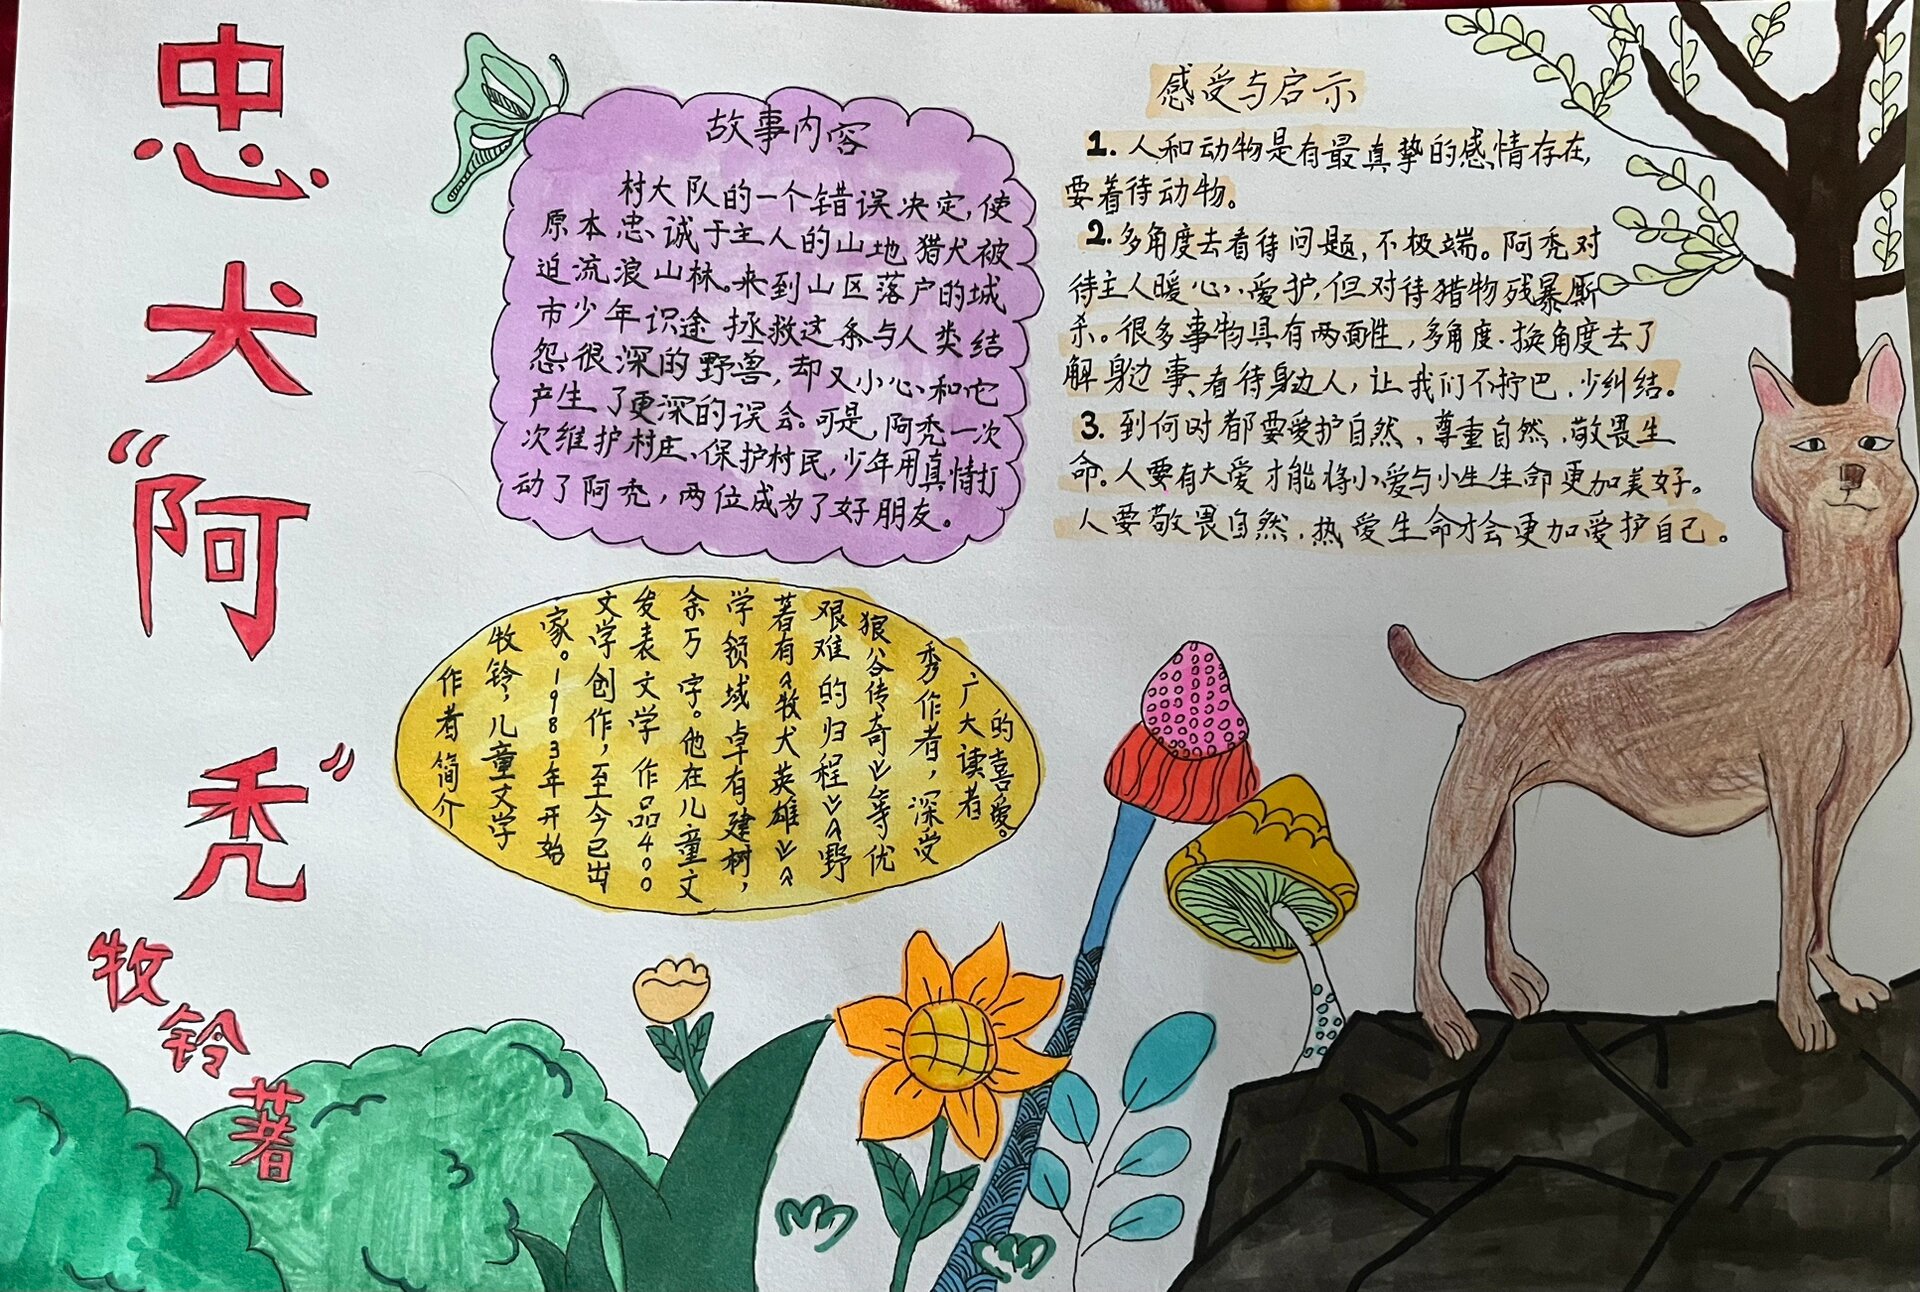 忠犬“阿秃”
牧铃著
故事内容
村大队的一个错误决定,使
原本忠诚于主人的山地猎犬被
迫流浪山林。来到山区落户的城
市少年识途拯救这条与人类结
怨很深的野兽,却又小心和它
产生了更深的误会。可是,阿秃一次
次维护村庄、保护村民,少年用真情打
动了阿秃，两位成为了好朋友。
感受与启示
1. 人和动物是有最真挚的感情存在,
要着待动物。
2. 多角度去看待问题,不极端。阿秃对
待主人暖心、爱护,但对待猎物残暴厮
杀。很多事物具有两面性,多角度.换角度去了
解身边事、看待身边人，让我们不拧巴、少纠结。
3. 到何时都要爱护自然、尊重自然、敬畏生
命。人要有大爱才能将小爱与小生生命更加美好。
人要敬畏自然、热爱生命才会更加爱护自己。
作者简介
牧铃，儿童文学
家。1983年开始
文学创作，至今已出
发表文学作品400
余万字。他在儿童文
学领域卓有建树，
著有《牧犬英雄》《
艰难的归程》《野
狼谷传奇》等优
秀作者，深受
广大读者
的喜爱。